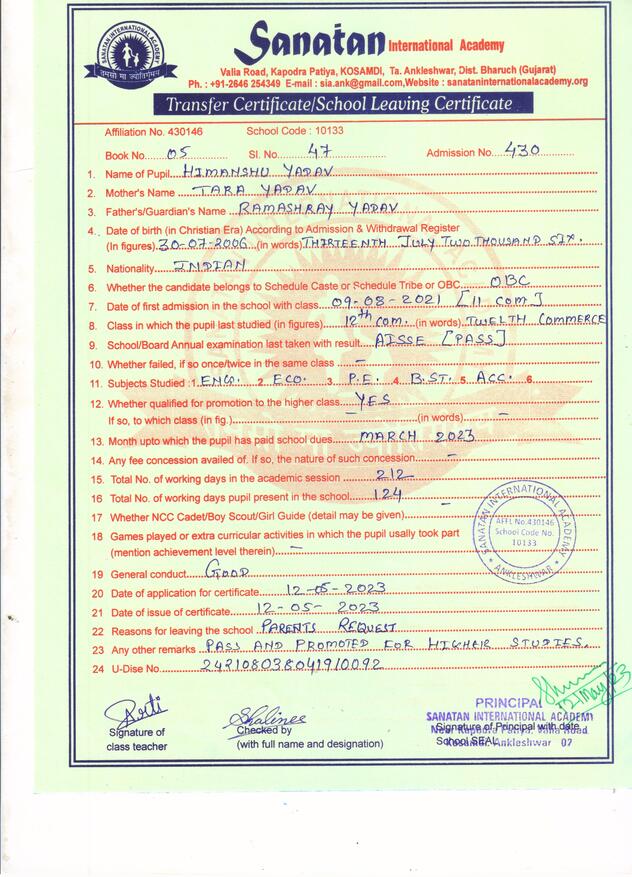 SANATAN INTERNATIONAL ACADEMY
तमसो मा ज्योतिर्गमय
Sanatan International Academy
Valia Road, Kapodra Patiya, KOSAMDI, Ta. Ankleshwar, Dist. Bharuch (Gujarat)
Ph. : +91-2646 254349 E-mail : sia.ank@gmail.com,Website : sanataninternationalacademy.org
Transfer Certificate/School Leaving Certificate
Affiliation No. 430146 School Code : 10133
Book No. 05 Sl. No. 47 Admission No. 430
1. Name of Pupil HIMANSHU YADAV
2. Mother's Name TARA YADAV
3. Father's/Guardian's Name RAMASHRAY YADAV
4. Date of birth (in Christian Era) According to Admission & Withdrawal Register
(In figures) 30-07-2006 (in words) THIRTEENTH JULY TWO THOUSAND SIX.
5. Nationality INDIAN
6. Whether the candidate belongs to Schedule Caste or Schedule Tribe or OBC OBC
7. Date of first admission in the school with class 09-08-2021 [11 COM]
8. Class in which the pupil last studied (in figures) 12th COM. (in words) TWELTH COMMERCE
9. School/Board Annual examination last taken with result AISSE [PASS]
10. Whether failed, if so once/twice in the same class –
11. Subjects Studied : 1. ENG. 2 ECO. 3. P.E. 4. B.ST. 5. ACC. 6.
12. Whether qualified for promotion to the higher class YES
If so, to which class (in fig.) – (in words) –
13. Month upto which the pupil has paid school dues MARCH 2023
14. Any fee concession availed of. If so, the nature of such concession –
15. Total No. of working days in the academic session 212
16 Total No. of working days pupil present in the school 124
17 Whether NCC Cadet/Boy Scout/Girl Guide (detail may be given) –
18 Games played or extra curricular activities in which the pupil usally took part
(mention achievement level therein) –
19 General conduct GOOD
20 Date of application for certificate 12-05-2023
21 Date of issue of certificate 12-05-2023
22 Reasons for leaving the school PARENTS REQUEST
23 Any other remarks PASS AND PROMOTED FOR HIGHER STUDIES.
24 U-Dise No. 242108038041910092
SANATAN INTERNATIONAL ACADEMY
AFFL No.430146
School Code No.
10133
ANKLESHWAR
12/May/23
PRINCIPAL
SANATAN INTERNATIONAL ACADEMY
Shalinee
Signature of
class teacher
Checked by
(with full name and designation)
Signature of Principal with date
School SEAL
Ankleshwar 07